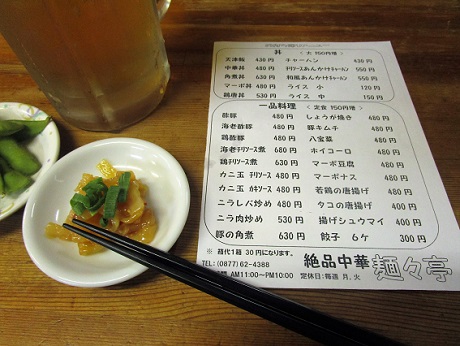 丼 〈 大 150円増 〉
天津飯 430円 チャーハン 430円
中華丼 480円 チリソースあんかけチャーハン 550円
角煮丼 630円 和風あんかけチャーハン 550円
マーボ丼 480円 ライス 小 120円
鶏唐丼 530円 ライス 中 150円
一品料理 〈 定食 150円増 〉
酢豚 480円 しょうが焼き 480円
海老酢豚 580円 豚キムチ 480円
鶏酢豚 530円 八宝菜 480円
海老チリソース煮 680円 ホイコーロ 480円
鶏チリソース煮 530円 マーボ豆腐 480円
カニ玉 チリソース 480円 マーボナス 480円
カニ玉 カキソース 480円 若鶏の唐揚げ 480円
ニラレバ炒め 480円 タコの唐揚げ 480円
ニラ肉炒め 530円 揚げシュウマイ 400円
豚の角煮 630円 餃子 6ケ 300円
※ 箱代1箱 30円になります。
絶品中華 麺々亭
TEL:(0877)62-4388
AM11:00~PM10:00 定休日:毎週 月、火